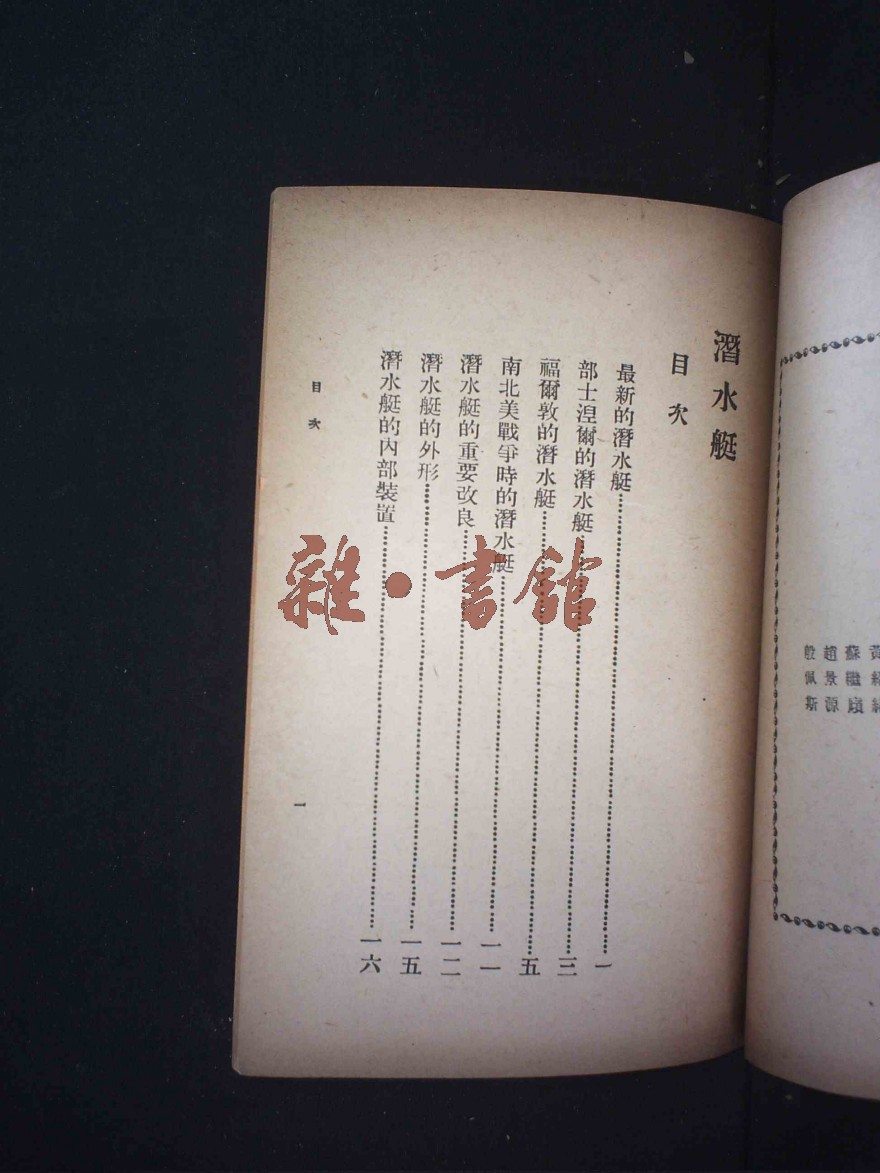 潛水艇
目次
最新的潛水艇……一
部士涅爾的潛水艇……三
福爾敦的潛水艇……五
南北美戰爭時的潛水艇……一一
潛水艇的重要改良……一二
潛水艇的外形……一五
潛水艇的內部裝置……一六
目次
一
蘇繼廎
趙景源
殷佩斯
雜·書館